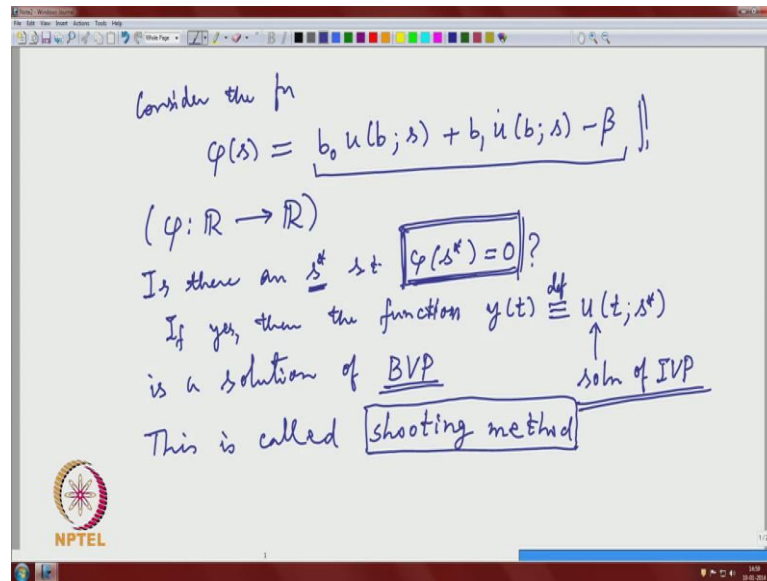 Note2 - Windows Journal
File Edit View Insert Actions Tools Help
Consider the fn
φ(s) = b₀ u(b; s) + b₁ u̇(b; s) − β
(φ: ℝ → ℝ)
Is there an s* s.t φ(s*) = 0 ?
If yes, then the function y(t) ≡ᵈᵉᶠ u(t; s*)
is a solution of BVP
soln of IVP
This is called shooting method
NPTEL